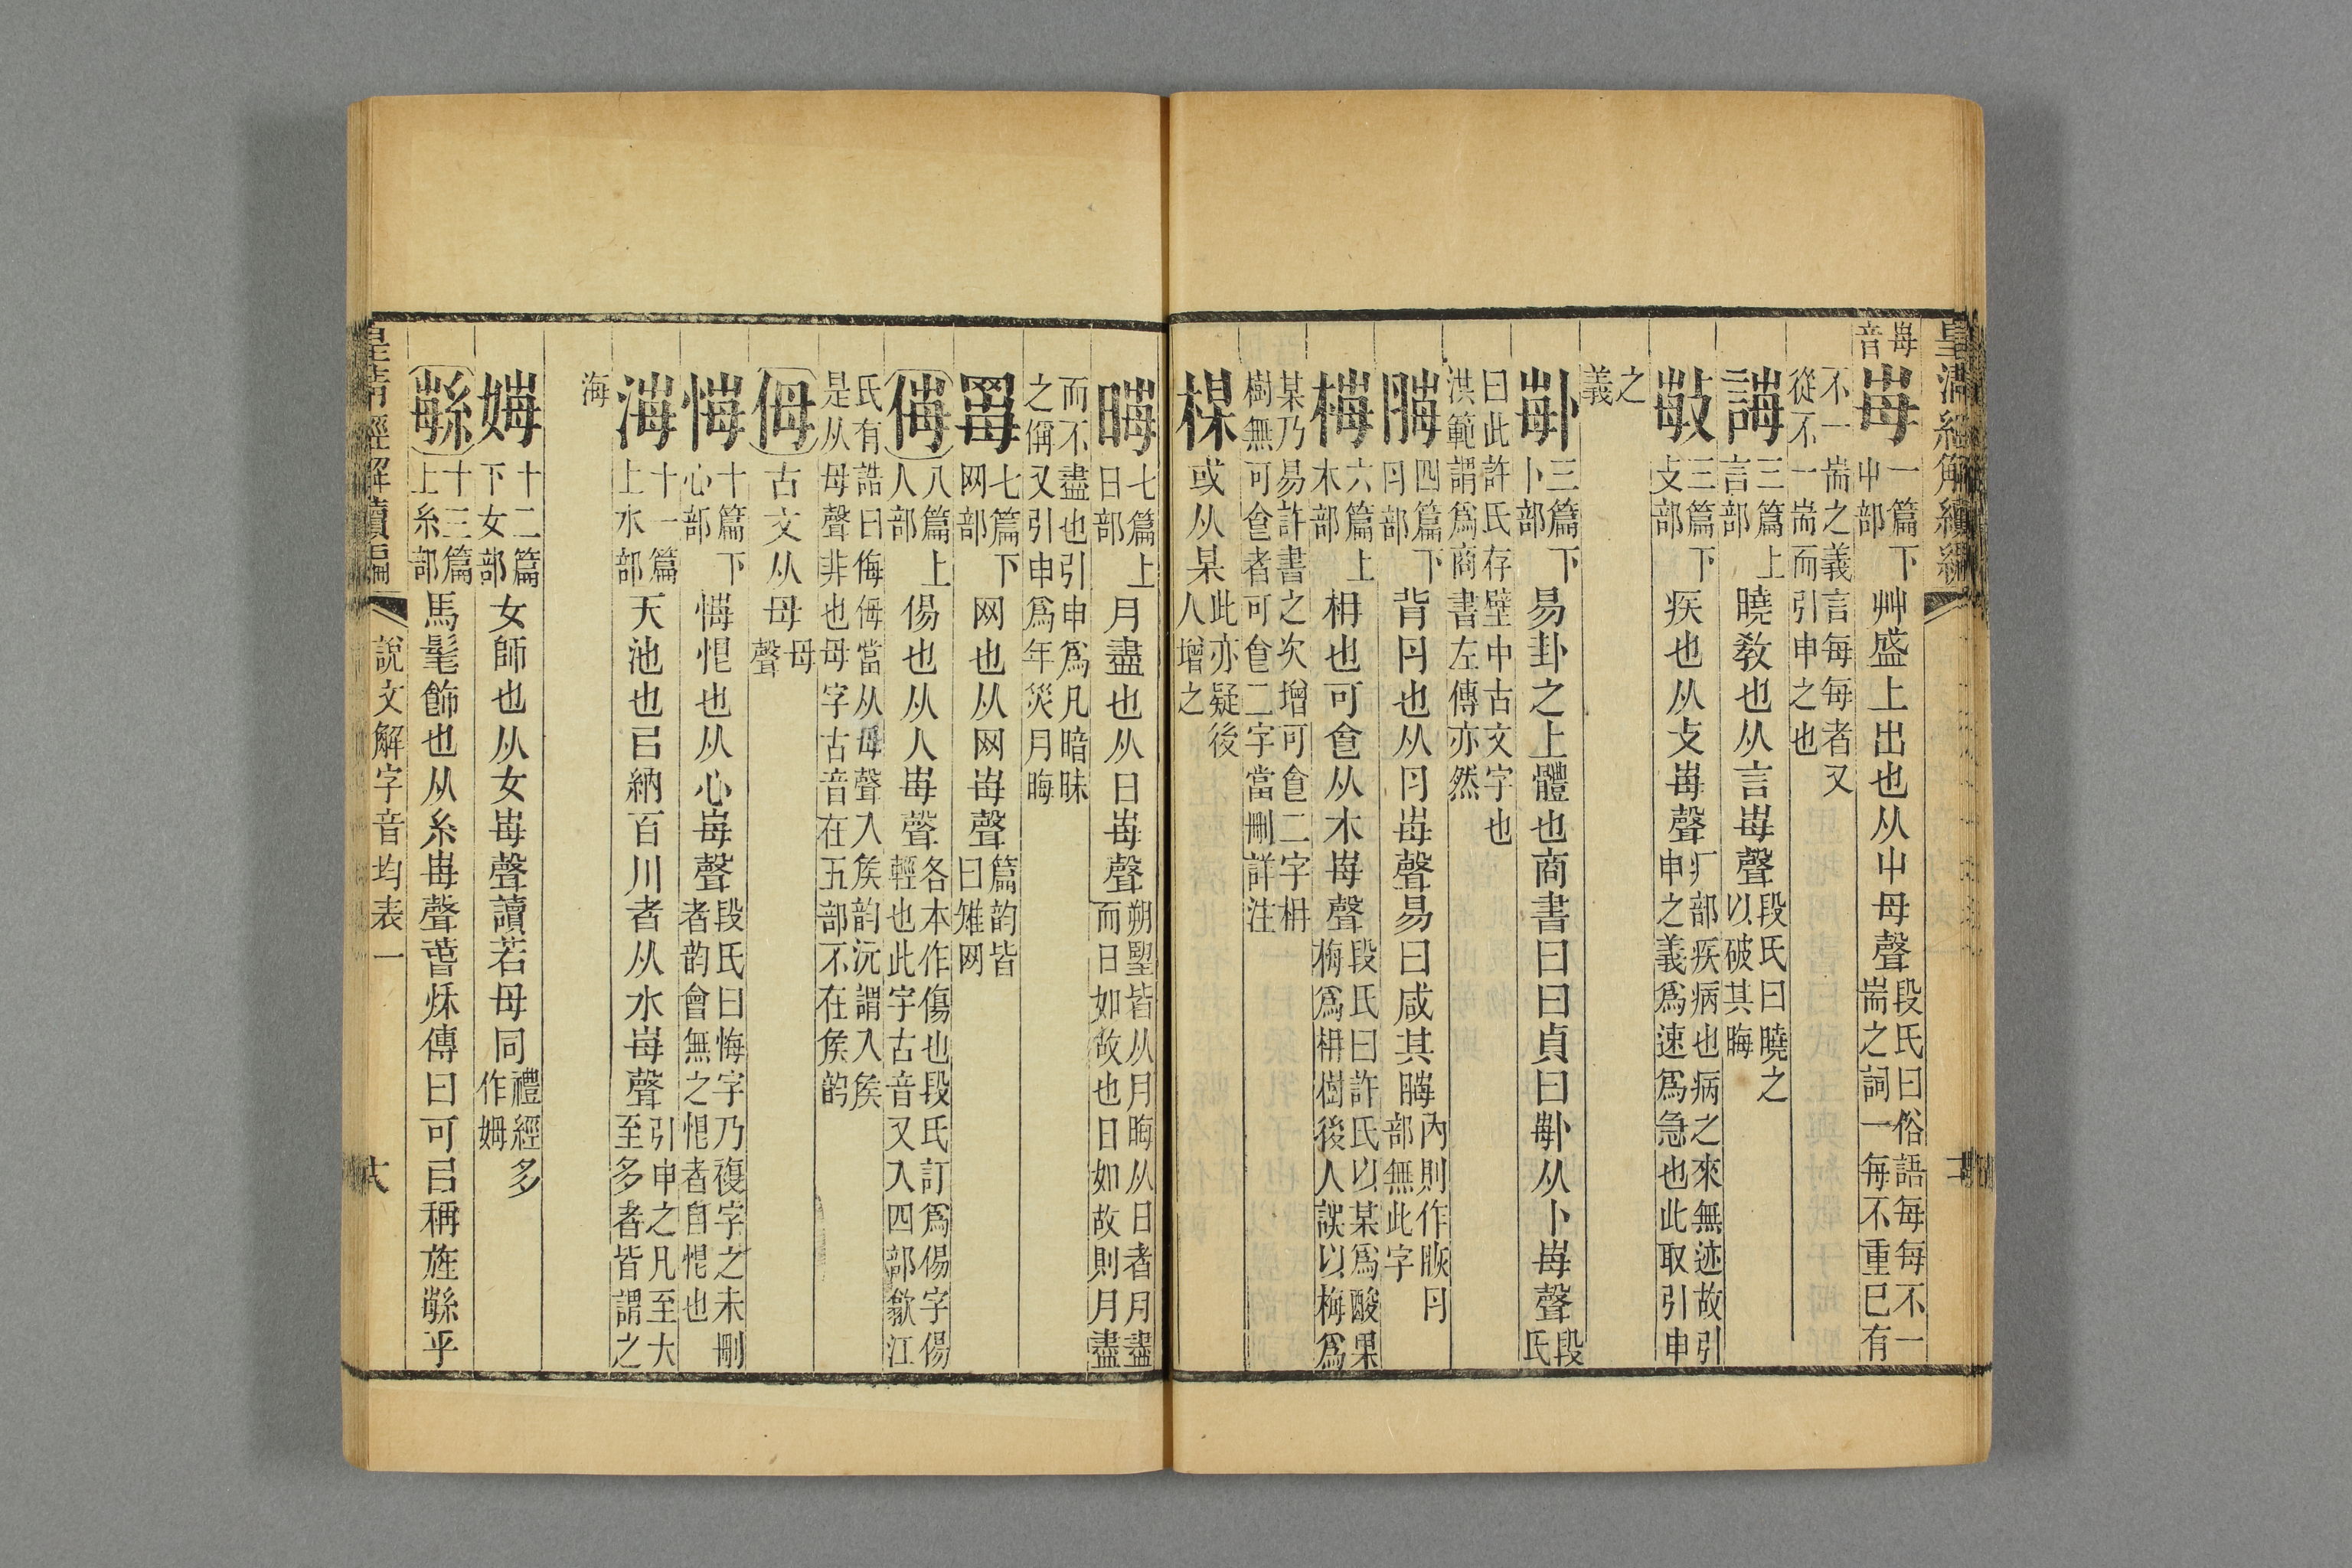 皇清經解續編
每音 每 一篇下屮部 艸盛上出也从屮母聲 段氏曰俗語每每不一耑之詞一每不重巳有
不一耑之義言每每者又從不一耑而引申之也
誨 三篇上言部 曉敎也从言每聲 段氏曰曉之以破其晦
敏 三篇下攴部 疾也从攴每聲 疒部疾病也病之來無迹故引申之義爲速爲急也此取引申
之義
𠧩 三篇下卜部 易卦之上體也商書曰曰貞曰𠧩从卜每聲 段氏
曰此許氏存壁中古文字也洪範謂爲商書左傳亦然
脢 四篇下肉部 背肉也从肉每聲易曰咸其脢 內則作脄肉部無此字
梅 六篇上木部 枏也可食从木每聲 段氏曰許氏以某爲酸果梅爲枏樹後人誤以梅爲
某乃易許書之次增可食二字枏樹無可食者可食二字當刪詳注
楳 或从某 此亦疑後人增之
晦 七篇上日部 月盡也从日每聲 朔朢皆从月晦从日者月盡而日如故也日如故則月盡
而不盡也引申爲凡暗昧之偁又引申爲年災月晦
䍙 七篇下网部 网也从网每聲 篇韵皆曰雉网
侮 八篇上人部 㑥也从人每聲 各本作傷也段氏訂爲㑥字㑥輕也此字古音又入四部歙江
氏有誥曰侮侮當从每聲入矦韵沅謂入矦是从母聲非也母字古音在五部不在矦韵
㑄 古文从母 母聲
悔 十篇下心部 悔恨也从心每聲 段氏曰悔字乃複字之未刪者韵會無之恨者自恨也
海 十一篇上水部 天池也㠯納百川者从水每聲 引申之凡至大至多者皆謂之
海
娒 十二篇下女部 女師也从女每聲讀若母同 禮經多作姆
緐 十三篇上糸部 馬髦飾也从糸每聲萅秌傳曰可㠯稱旌緐乎
皇清經解續編 說文解字音均表一 六